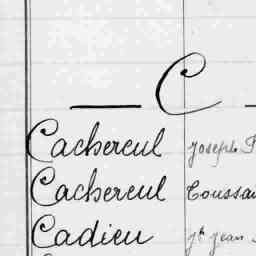 C
Cachereul Joseph
Cachereul Toussai
Cadieu Jh Jean